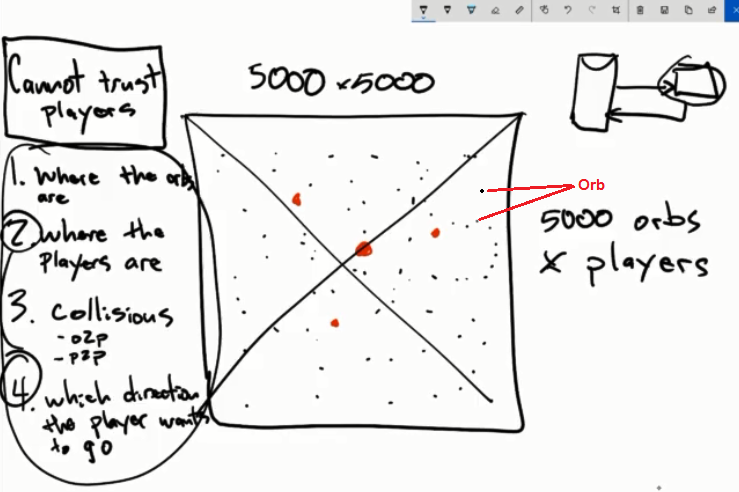 Cannot trust
players
5000 x 5000
1. Where the orbs
are
2. Where the
players are
3. Collisious
- o2p
- p2p
4. which direction
the player wants
to go
Orb
5000 orbs
X players